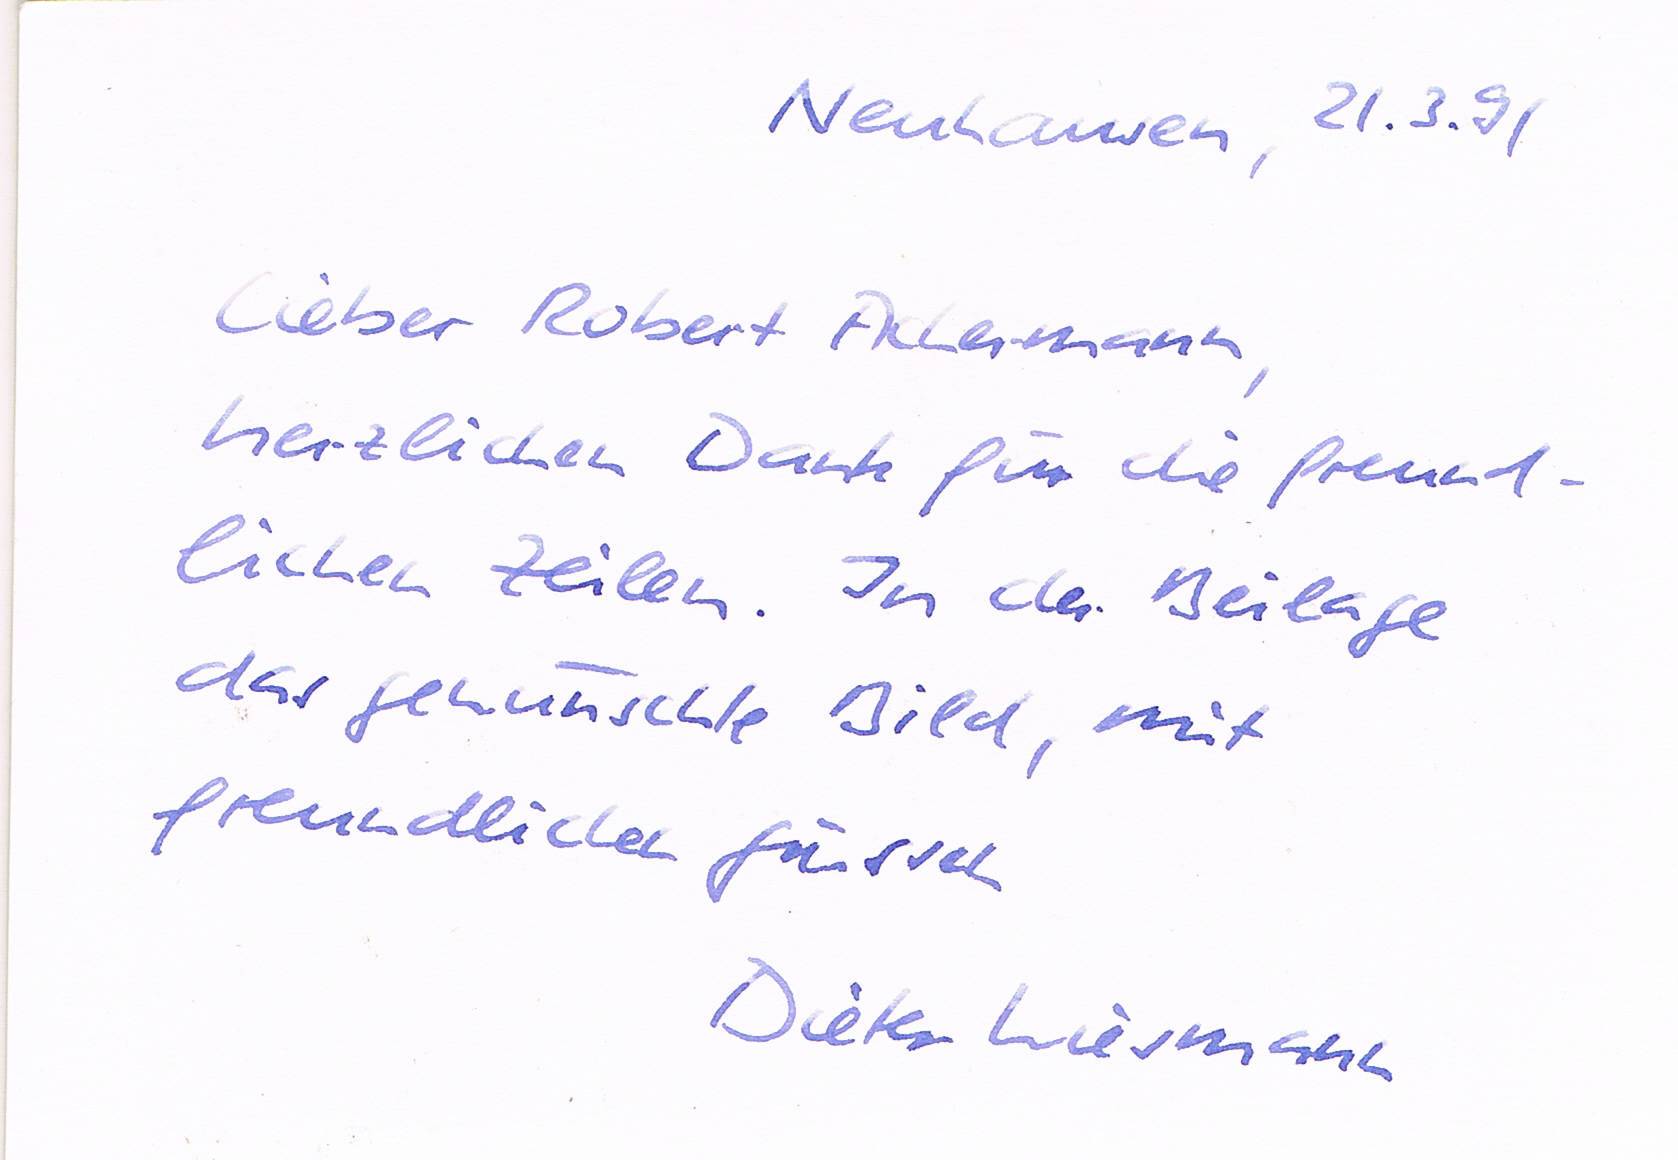 Neuhausen, 21.3.91
Lieber Robert Ackermann,
herzlichen Dank für die freund-
lichen Zeilen. In der Beilage
das gewünschte Bild, mit
freundlichen Grüssen
Dieter Wiesmann